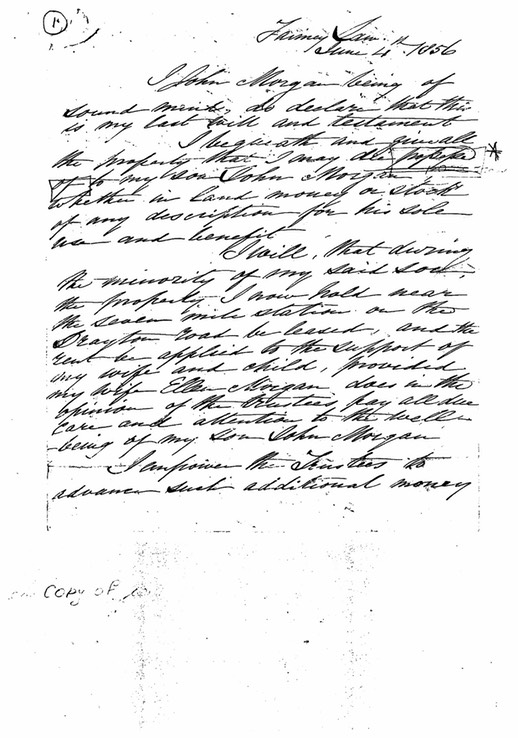 1
June 4th 1856
I John Morgan being of
sound mind, do declare that this
is my last will and testament
I bequeath and give all
the property that I may die *
of to my son John Morgan
whether in land money or stock
of any description for his sole
use and benefit
I will, that during
the minority of my said son,
the property I now hold near
the seven mile station on the
Drayton road be leased, and the
rent be applied to the support of
my wife and child, provided
my wife Ellen Morgan does in the
opinion of the trustees pay all due
care and attention to the well
being of my son John Morgan
I empower the Trustees to
advance such additional money
COPY OF